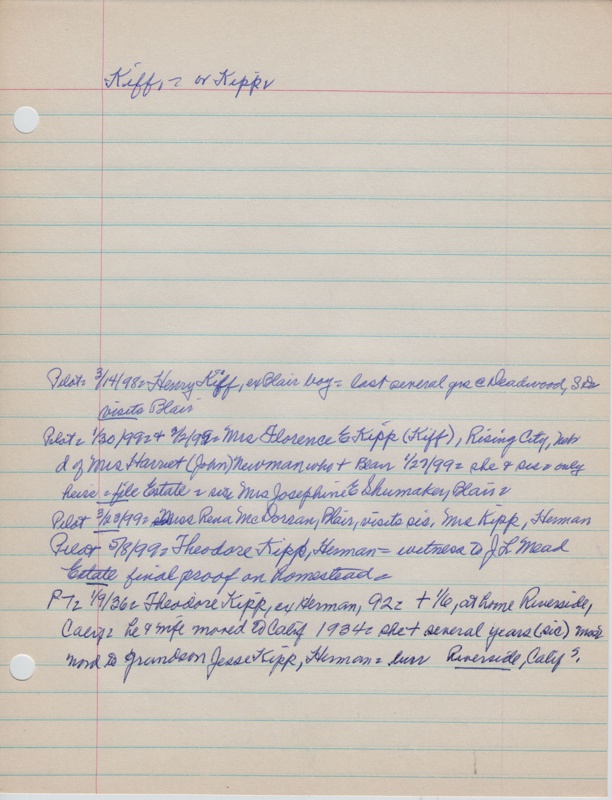 Kiff, = or Kipp
Pilot= 3/14/98= Henry Kiff, ex Blair boy= last several yrs @ Deadwood, S Dk
visits Blair
Pilot= 1/30/99= + 2/2/99= Mrs Florence E Kipp (Kiff), Rising City, Neb
d of Mrs Harriet (John) Newman who + Blair 1/27/99= she & sis= only
heirs= file Estate= sis Mrs Josephine E Shumaker, Blair=
Pilot 3/23/99= Miss Rena Mc Dorsan, Blair, visits sis. Mrs Kipp, Herman
Pilot 5/8/99= Theodore Kipp, Herman= witness to J L Mead
Estate final proof on homestead=
P T= 1/9/36= Theodore Kipp, ex Herman, 92= + 1/6, at home Riverside,
= he & wife moved to Calif 1934= she + several years (sic)
word to grandson Jesse Kipp, Herman= burr Riverside, Calif